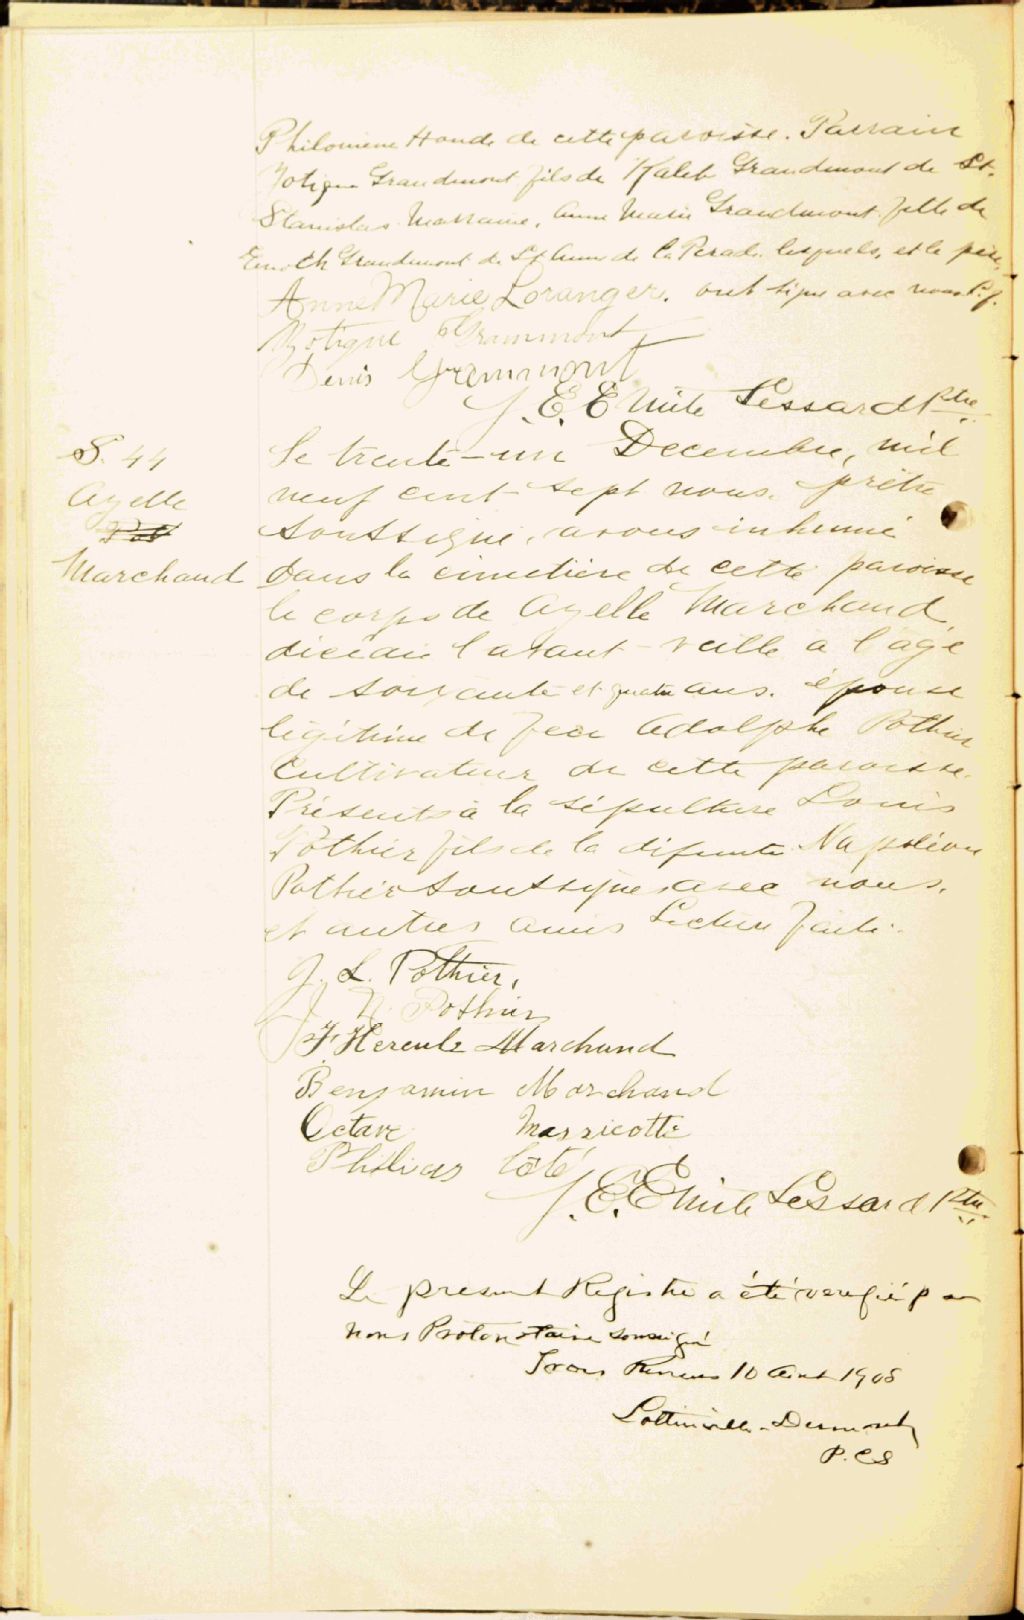 Philomène Houde de cette paroisse. Parrain
Zotique Grandmont fils de Kaleb Grandmont de St.
Stanislas. Marraine, Anne Marie Grandmont fille de
Enoch Grandmont de St Anne de la Perade lesquels, et le père,
Anne Marie Loranger. ont signé avec nous. L. f.
Zotique Grammont
Denis Grammont
J. E. Emile Lessard Ptre
S. 44
Azelle
Marchand
Le trente-un Decembre, mil
neuf cent-sept nous. prêtre
soussigné, avons inhumé
dans le cimetière de cette paroisse
le corps de Azelle Marchand,
décédée l'avant-veille a l'age
de soixante et quatre ans. épouse
légitime de feu Adolphe Pothier
Cultivateur de cette paroisse.
Présents à la sépulture Louis
Pothier fils de la défunte Napoléon
Pothier soussignés avec nous,
et autres amis Lecture faite.
J. L. Pothier,
J N. Pothier
F. Hercule Marchand
Benjamin Marchand
Octave Massicotte
Philias Côté
J. E. Emile Lessard Ptre.
Le present Registre a été verifié par
nous Protonotaire soussigné
Trois Rivieres 10 Aout 1908
P. C S